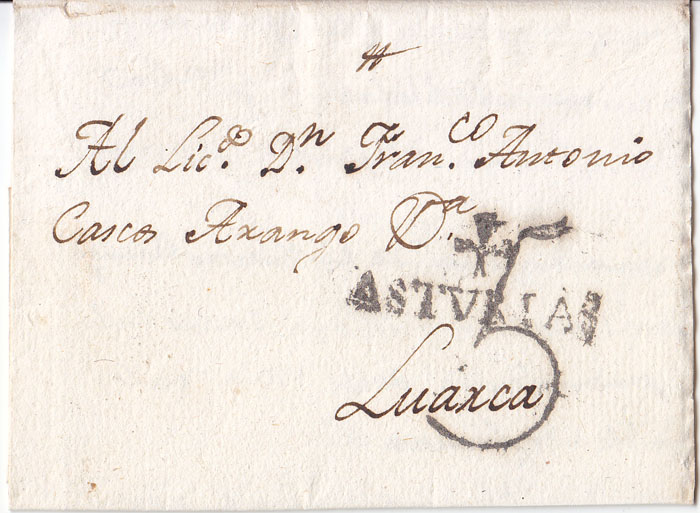 Al Lic.do D.n Fran.co Antonio
Cascos Arango V.a
ASTVRIAS
5
Luarca